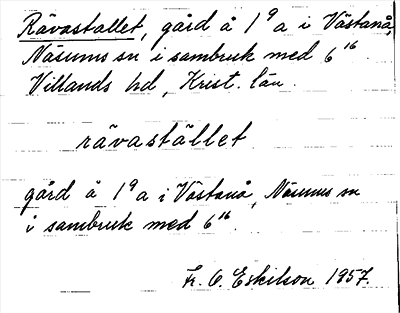 Rävastallet, gård å 1⁹a i Västanå,
Näsums sn i sambruk med 6¹⁶.
Villands hd, Krist. län.
rävastället
gård å 1⁹a i Västanå, Näsums sn
i sambruk med 6¹⁶.
Fr. O. Eskilson 1957.